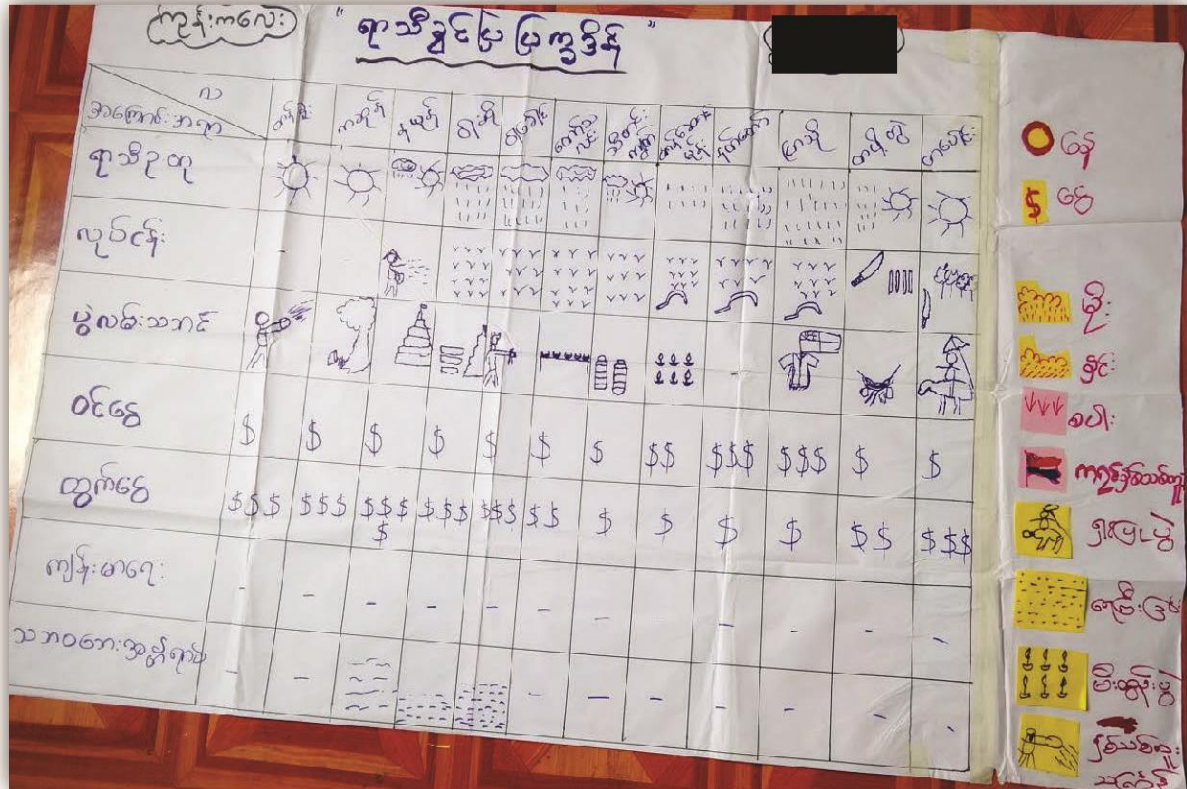 ကွန်းကလေး
"ရာသီခွင်ပြ ပြက္ခဒိန်"
လ
အကြောင်းအရာ
တန်ခူး ကဆုန် နယုန် ဝါဆို ဝါခေါင် တော်သလင်း သီတင်းကျွတ် တန်ဆောင်မုန်း နတ်တော် ပြာသို တပို့တွဲ တပေါင်း
ရာသီဥတု
လုပ်ငန်း
- -
ပွဲလမ်းသဘင်
-
ဝင်ငွေ
$ $ $ $ $ $ $ $$ $$$ $$$ $ $
ထွက်ငွေ
$$$ $$$ $$$$ $$$ $$$ $$ $ $ $ $ $$ $$$
ကျန်းမာရေး
- - - - - - - - - - - -
သဘာဝဘေးအန္တရာယ်
- - - - - - - - -
နေ
$ ငွေ
မိုး
နှင်း
စပါး
ကရင်နှစ်သစ်ကူး
ရှင်ပြုပွဲ
ရေကြီး
မီးထွန်းပွဲ
နှစ်သစ်ကူး
သင်္ကြန်